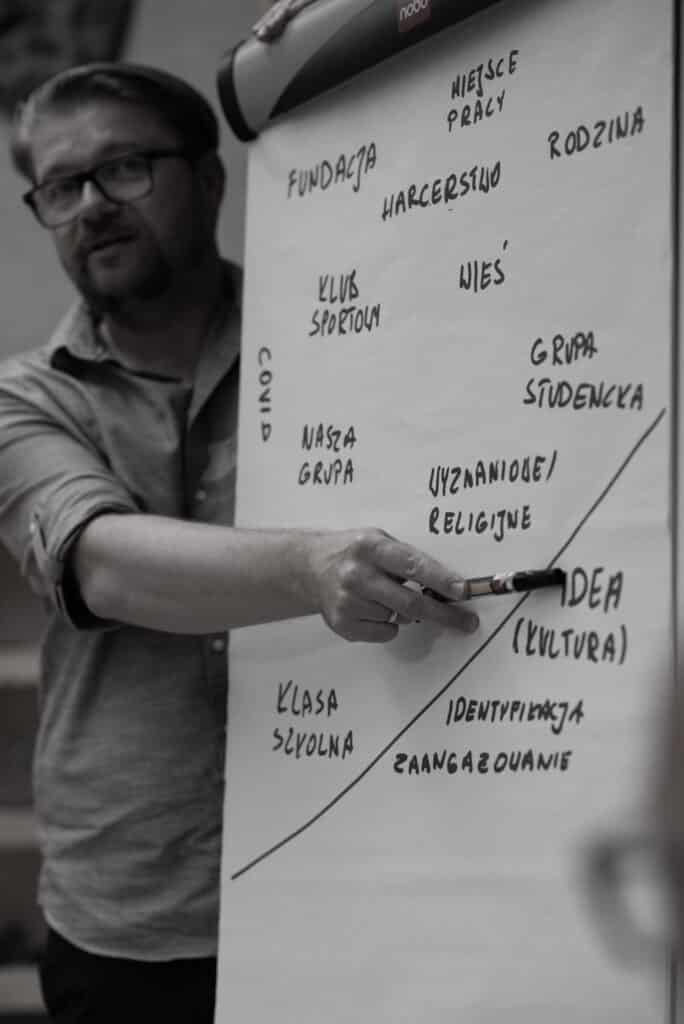 nobo
MIEJSCE
PRACY
RODZINA
FUNDACJA
HARCERSTWO
KLUB
SPORTOWY
WIEŚ
COVID
GRUPA
STUDENCKA
NASZA
GRUPA
WYZNANIOWE/
RELIGIJNE
IDEA
(KULTURA)
KLASA
SZKOLNA
IDENTYFIKACJA
ZAANGAZOWANIE